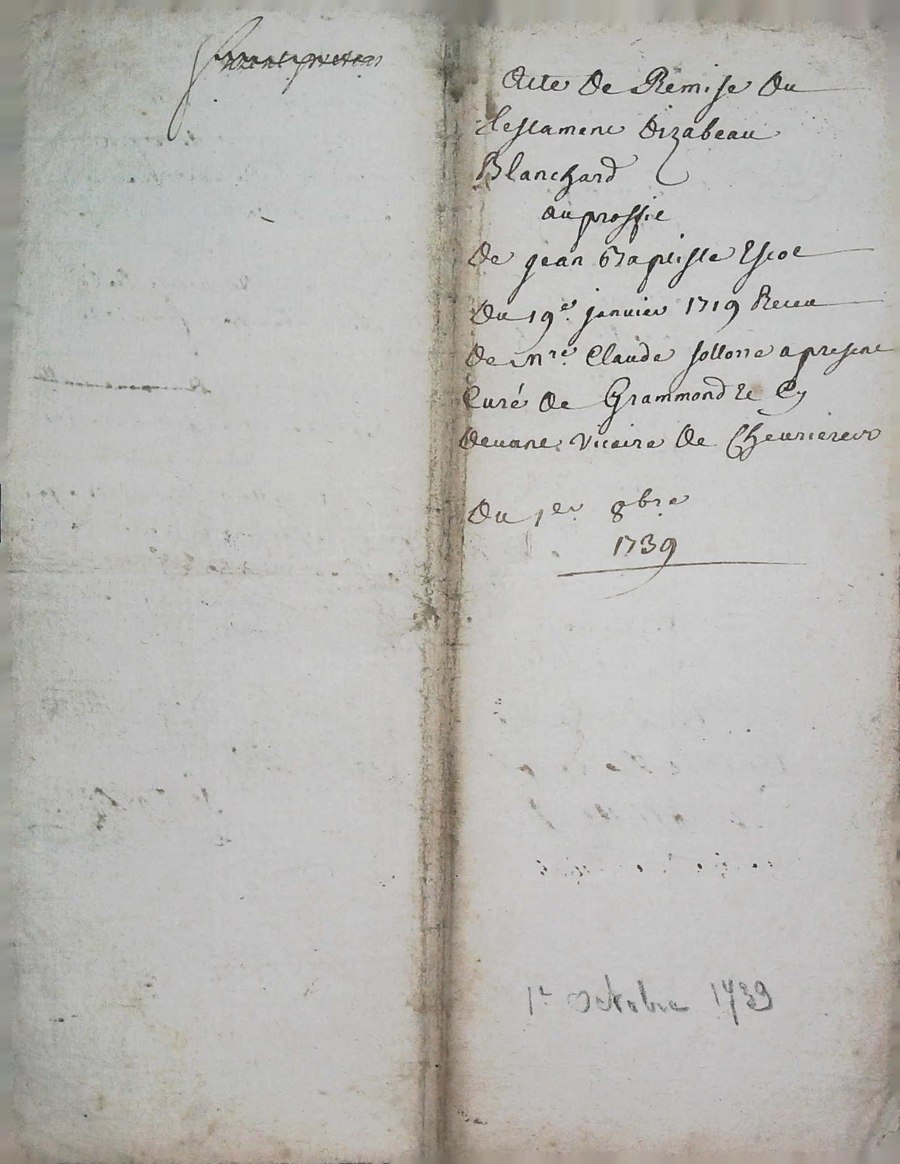 Acte de Remise du
testament dizabeau
Blanchard
au proffit
De jean Baptiste Escot
Du 19e janvier 1719 Receu
De mre Claude jollone a present
Curé de Grammond & Cy
devant vicaire de Chevrieres
Du 1er 8bre
1739
1r octobre 1739